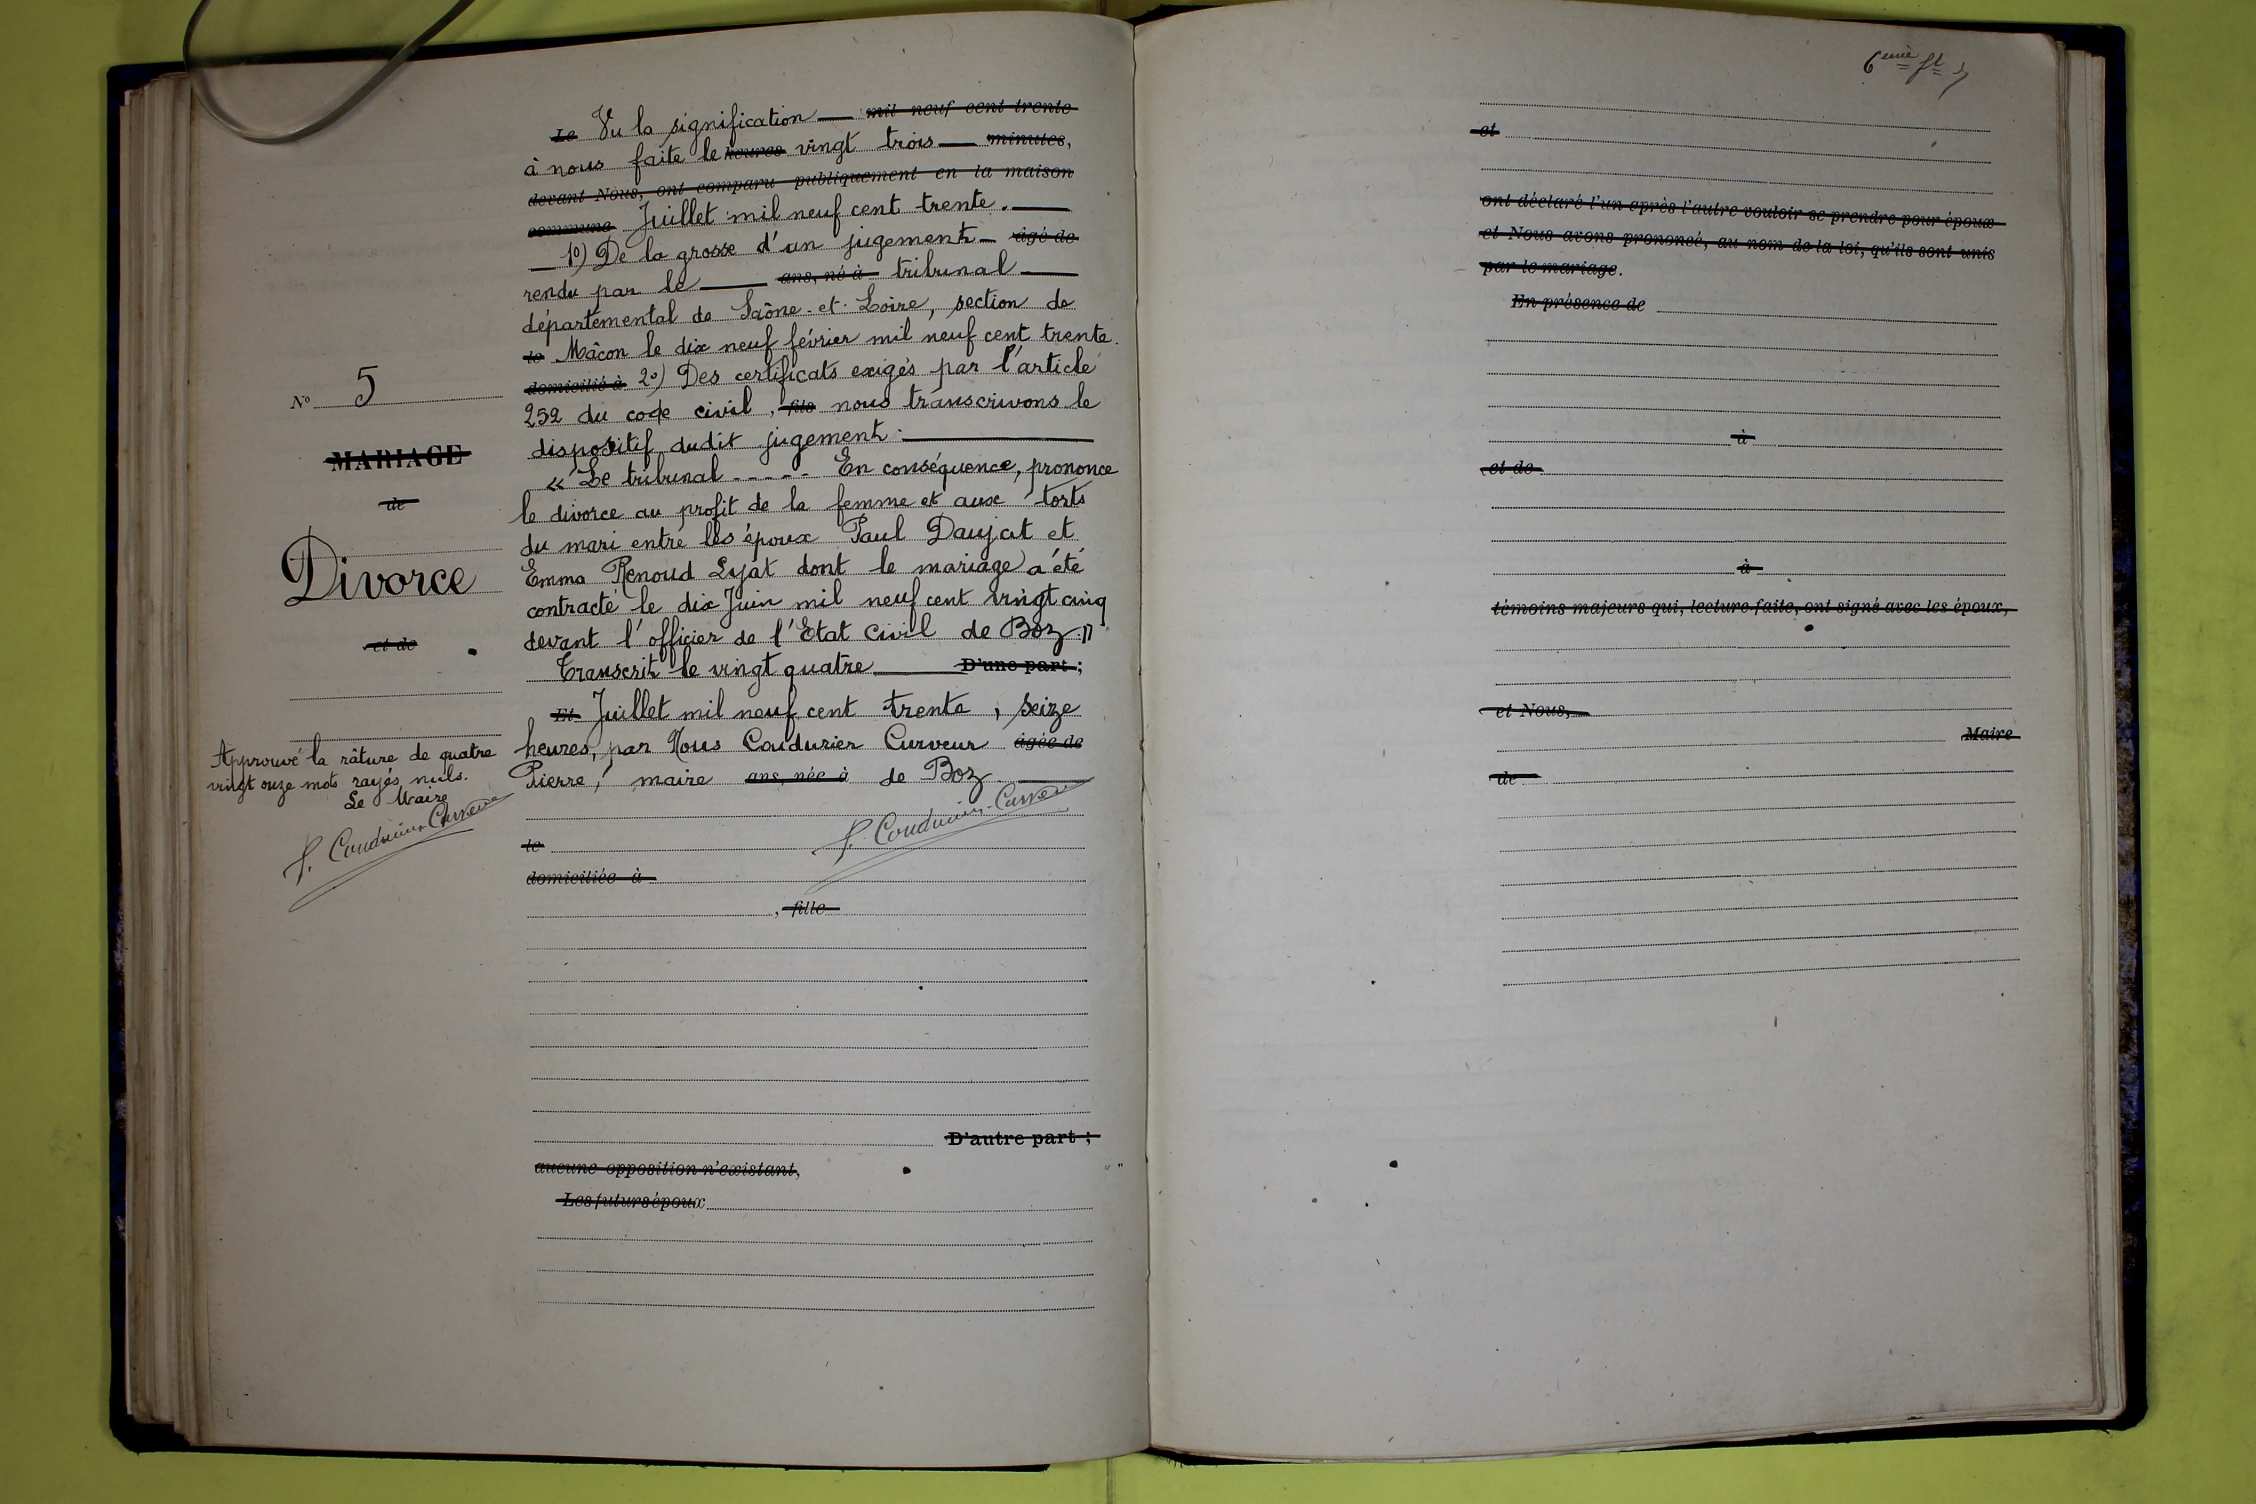 Le Vu la signification mil neuf cent trente
à nous faite le heures vingt trois minutes,
devant Nous, ont comparu publiquement en la maison
commune Juillet mil neuf cent trente.
1o) De la grosse d'un jugement âgé de
rendu par le ans, né à tribunal
départemental de Saône-et-Loire, section de
le Mâcon le dix neuf février mil neuf cent trente.
domicilié à 2o) Des certificats exigés par l'article
252 du code civil, fils nous transcrivons le
dispositif dudit jugement.
« Le tribunal ----- En conséquence, prononce
le divorce au profit de la femme et aux torts
du mari entre les époux Paul Daujat et
Emma Renoud Lyat dont le mariage a été
contracté le dix Juin mil neuf cent vingt cinq
devant l'officier de l'Etat Civil de Boz."
Transcrit le vingt quatre D'une part ;
Et Juillet mil neuf cent trente, seize
heures, par Nous Coudurier Curveur âgée de
Pierre, maire ans, née à de Boz.
P. Coudurier-Curveur
le
domiciliée à
, fille
D'autre part ;
aucune opposition n'existant,
Les futurs époux
No 5
MARIAGE
de
Divorce
et de
Approuvé la râture de quatre
vingt onze mots rayés nuls.
Le Maire
P. Coudurier-Curveur
6eme ft
et
ont déclaré l'un après l'autre vouloir se prendre pour époux
et Nous avons prononcé, au nom de la loi, qu'ils sont unis
par le mariage.
En présence de
à
et de
à
témoins majeurs qui, lecture faite, ont signé avec les époux,
et Nous,
Maire
de